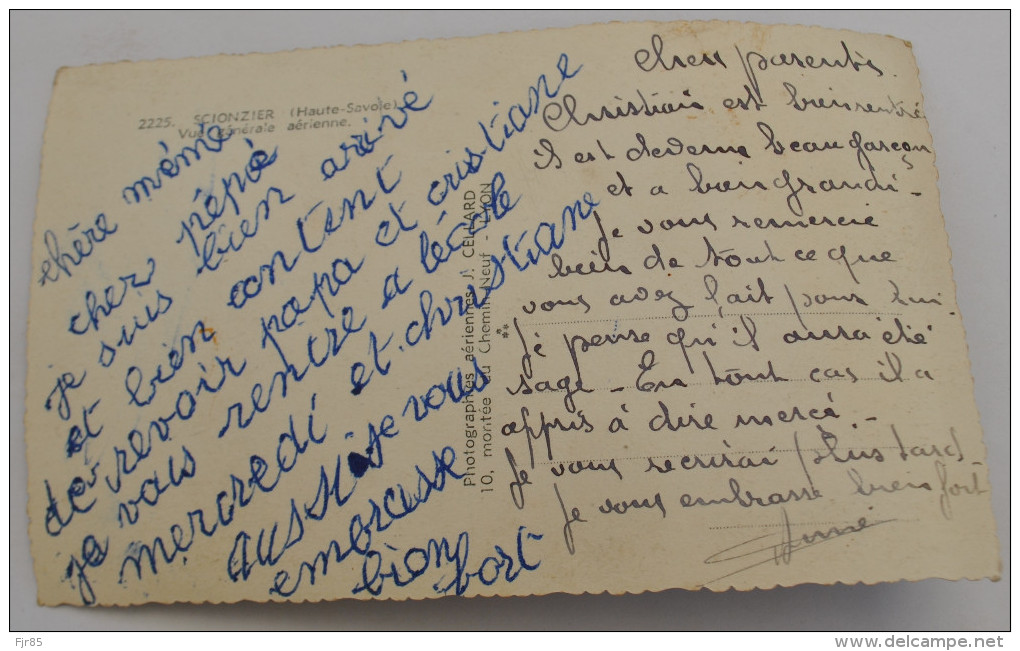 2225. SCIONZIER (Haute-Savoie)
Vue générale aérienne.
chère mémé
cher pépé
je suis bien arivé
et bien content
de revoir papa et cristiane
je vais rentré a lécole
mercredi et christiane
aussi je vous
embrasse
bien fort
Photographies aériennes J. CELLARD
10, montée du Chemin-Neuf - LYON
Chers parents
Christian est bien rentré
il est devenu beau garçon
et a bien grandi -
Je vous remercie
bien de tout ce que
vous avez fait pour lui
Je pense qu'il aura été
sage - En tout cas il a
appris à dire merci -
Je vous recrirai plus tard
Je vous embrasse bien fort
Fjr85
www.delcampe.net